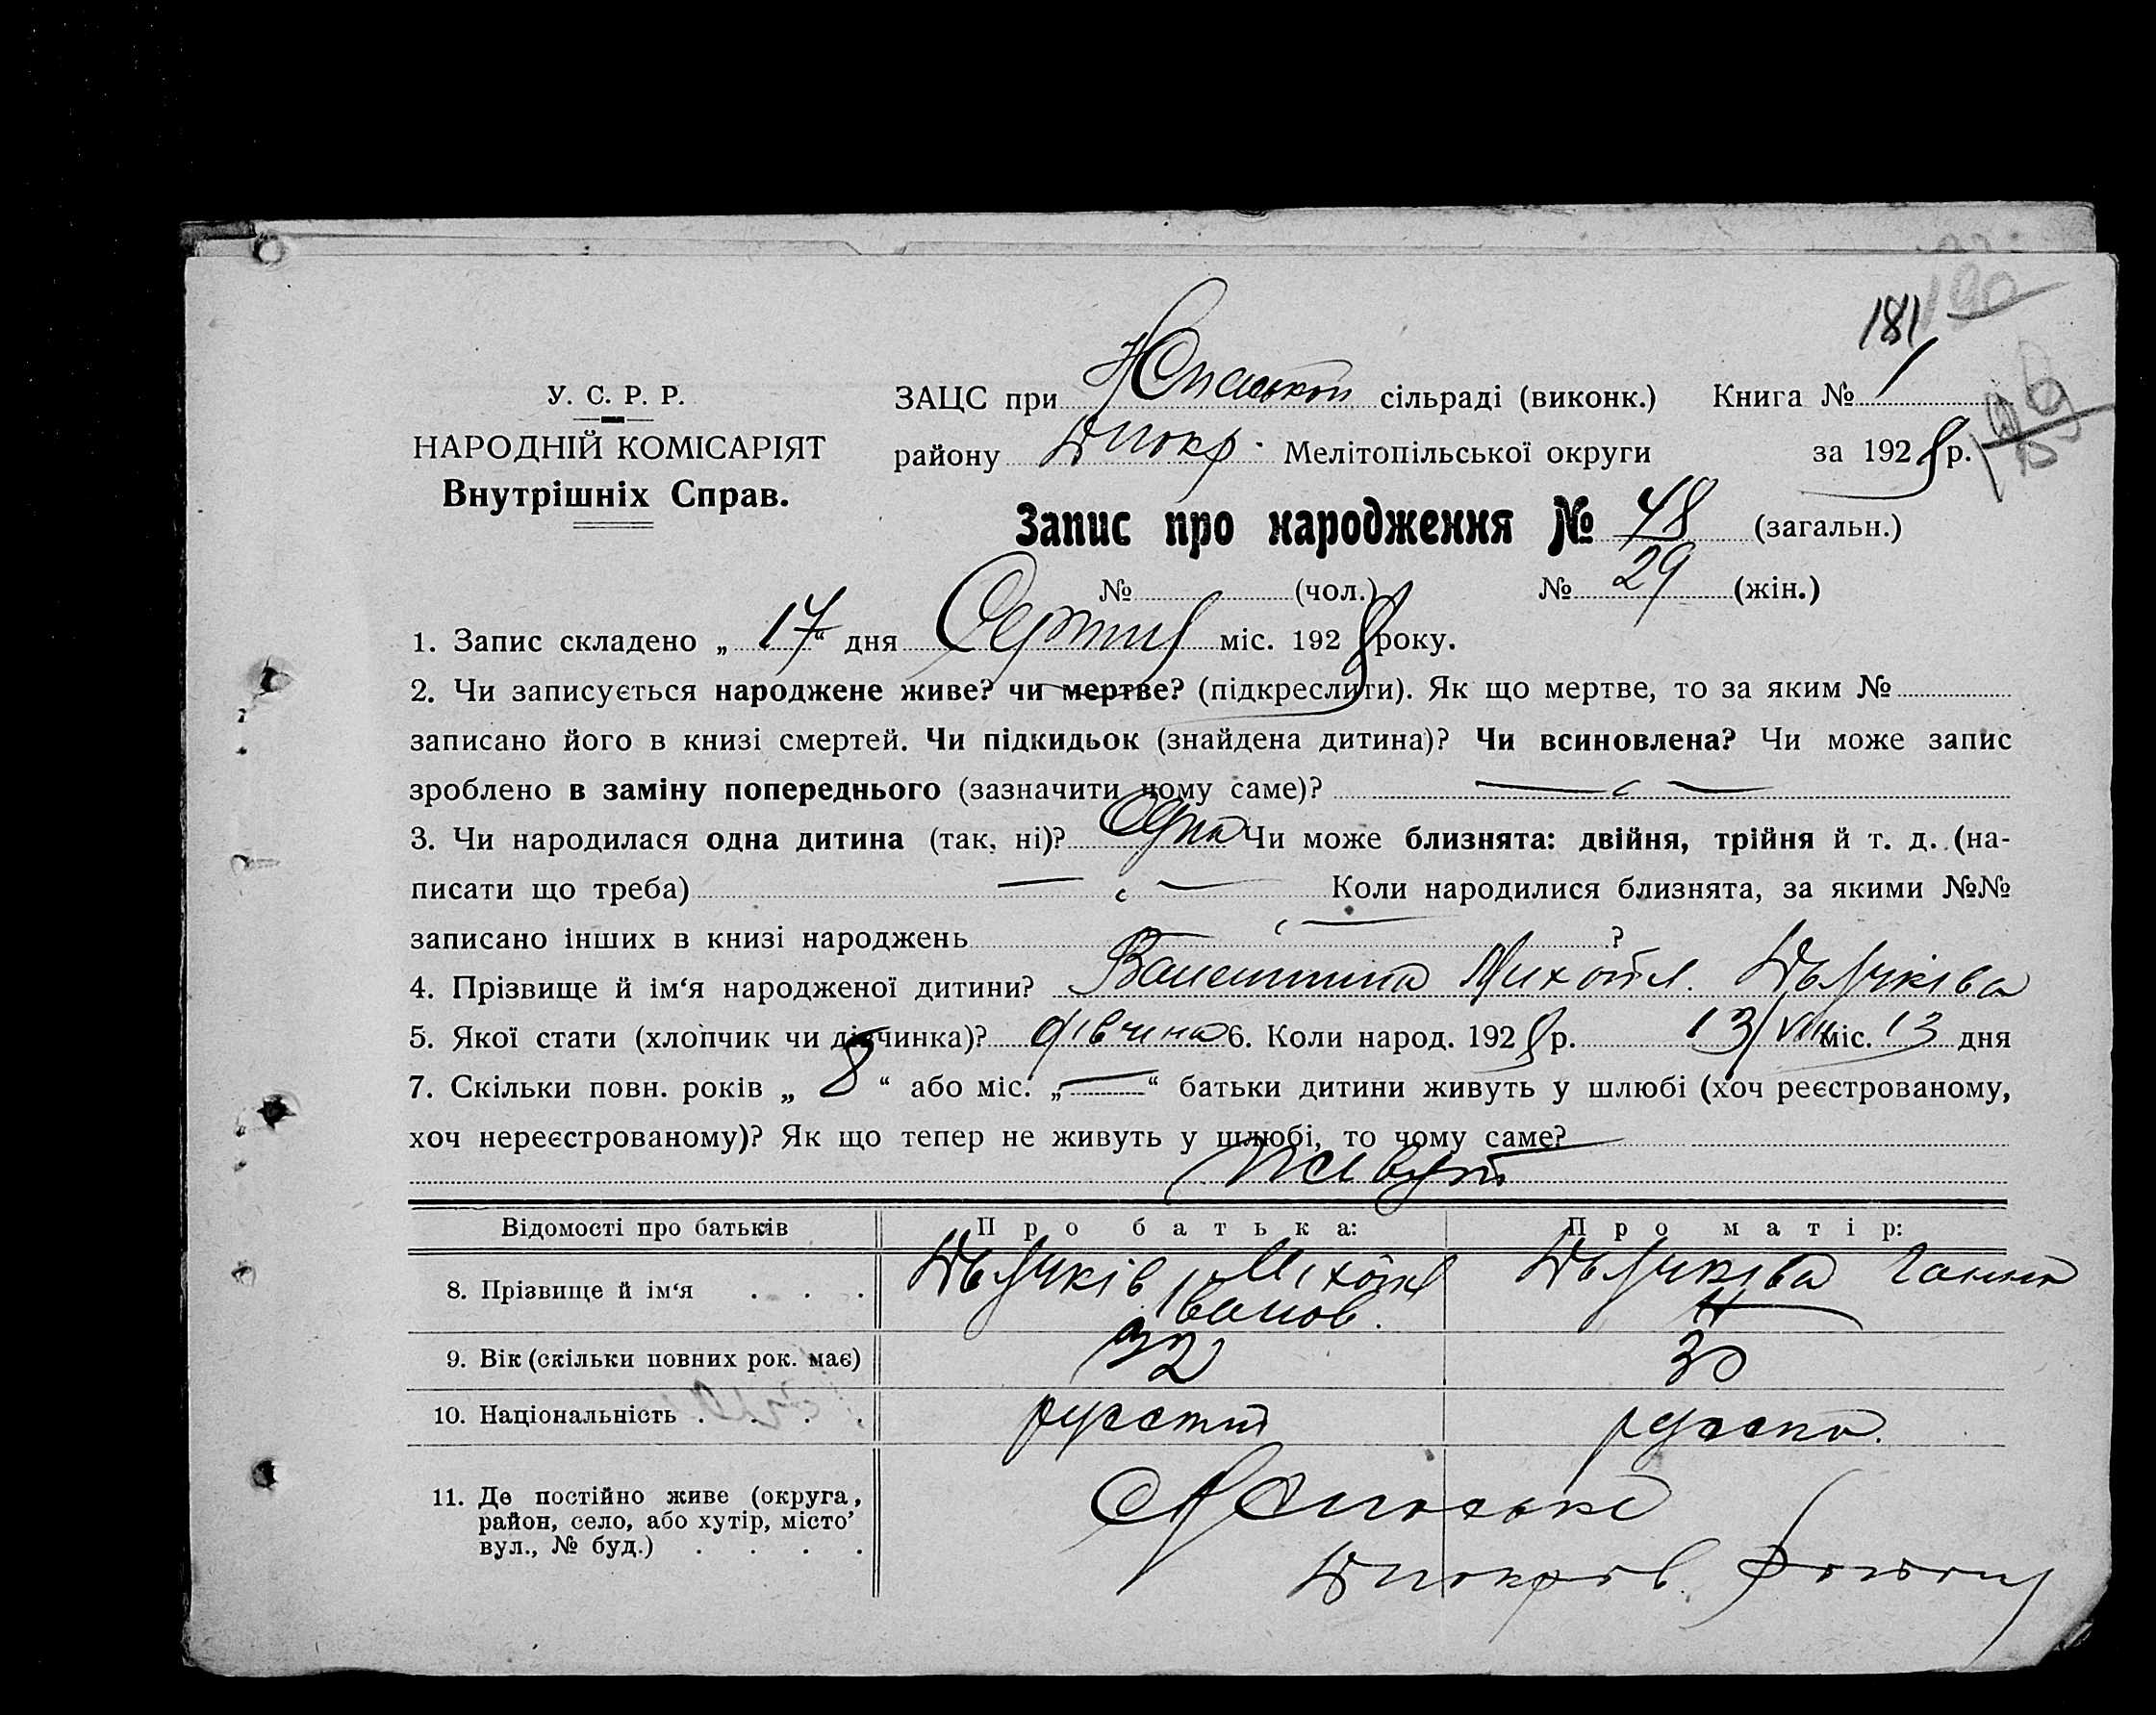 181 190
У. С. Р. Р.
НАРОДНІЙ КОМІСАРІЯТ
Внутрішніх Справ.
ЗАЦС при сільраді (виконк.) Книга № 1
району Якокр. Мелітопільської округи за 1928 р.
Запис про народження № 48 (загальн.)
№ (чол.) № 29 (жін.)
1. Запис складено „ 17 “ дня Серпня міс. 1928 року.
2. Чи записується народжене живе? чи мертве? (підкреслити). Як що мертве, то за яким №
записано його в книзі смертей. Чи підкидьок (знайдена дитина)? Чи всиновлена? Чи може запис
зроблено в заміну попереднього (зазначити чому саме)?
3. Чи народилася одна дитина (так, ні)? Одна Чи може близнята: двійня, трійня й т. д. (на-
писати що треба) Коли народилися близнята, за якими №№
записано інших в книзі народжень ?
4. Прізвище й ім‘я народженої дитини? Валентина Михайл.
5. Якої стати (хлопчик чи дівчинка)? дівчина 6. Коли народ. 1928 р. 13/VIII міс. 13 дня
7. Скільки повн. років „ 8 “ або міс. „ — “ батьки дитини живуть у шлюбі (хоч реєстрованому,
хоч нереєстрованому)? Як що тепер не живуть у шлюбі, то чому саме?
живуть
Відомості про батьків Про батька: Про матір:
8. Прізвище й ім‘я . . . Міхайл Іванов. Ганна
9. Вік (скільки повних рок. має) 32 30
10. Національність . . . . русский руска.
11. Де постійно живе (округа,
район, село, або хутір, місто’
вул., № буд.) . . . .
району